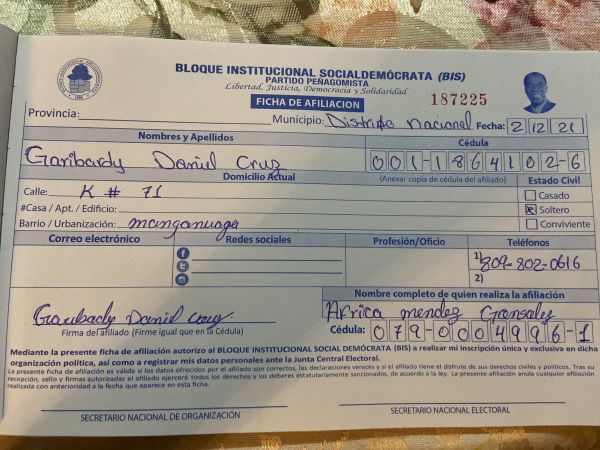 BLOQUE INSTITUCIONAL SOCIALDEMÓCRATA (BIS)
PARTIDO PEÑAGOMISTA
Libertad, Justicia, Democracia y Solidaridad
FICHA DE AFILIACION 187225
Provincia: Municipio: Distrito Nacional Fecha: 2 12 21
Nombres y Apellidos Cédula
Garibardy Daniel Cruz 001-1864102-6
Domicilio Actual (Anexar copia de cédula del afiliado) Estado Civil
Calle: K # 71 Casado
#Casa / Apt. / Edificio: Soltero
Barrio / Urbanización: manganuaga Conviviente
Correo electrónico Redes sociales Profesión/Oficio Teléfonos
1) 809-802-0616
2)
Nombre completo de quien realiza la afiliación
Garibady Daniel Cruz. Africa mendez Gonzalez
Firma del afiliado (Firme igual que en la Cédula) Cédula: 079-0004996-1
Mediante la presente ficha de afiliación autorizo al BLOQUE INSTITUCIONAL SOCIAL DEMÓCRATA (BIS) a realizar mi inscripción única y exclusiva en dicha
organización política, así como a registrar mis datos personales ante la Junta Central Electoral.
La presente ficha de afiliación es válida si los datos ofrecidos por el afiliado son correctos, las declaraciones veraces y si el afiliado tiene el disfrute de sus derechos civiles y políticos. Tras su
recepción, sello y firmas autorizadas el afiliado ejercerá todos los derechos y los deberes estatutariamente sancionados, de acuerdo a la ley. La presente afiliación anula cualquier afiliación
realizada con anterioridad a la fecha que aparece en esta ficha.
SECRETARIO NACIONAL DE ORGANIZACIÓN SECRETARIO NACIONAL ELECTORAL